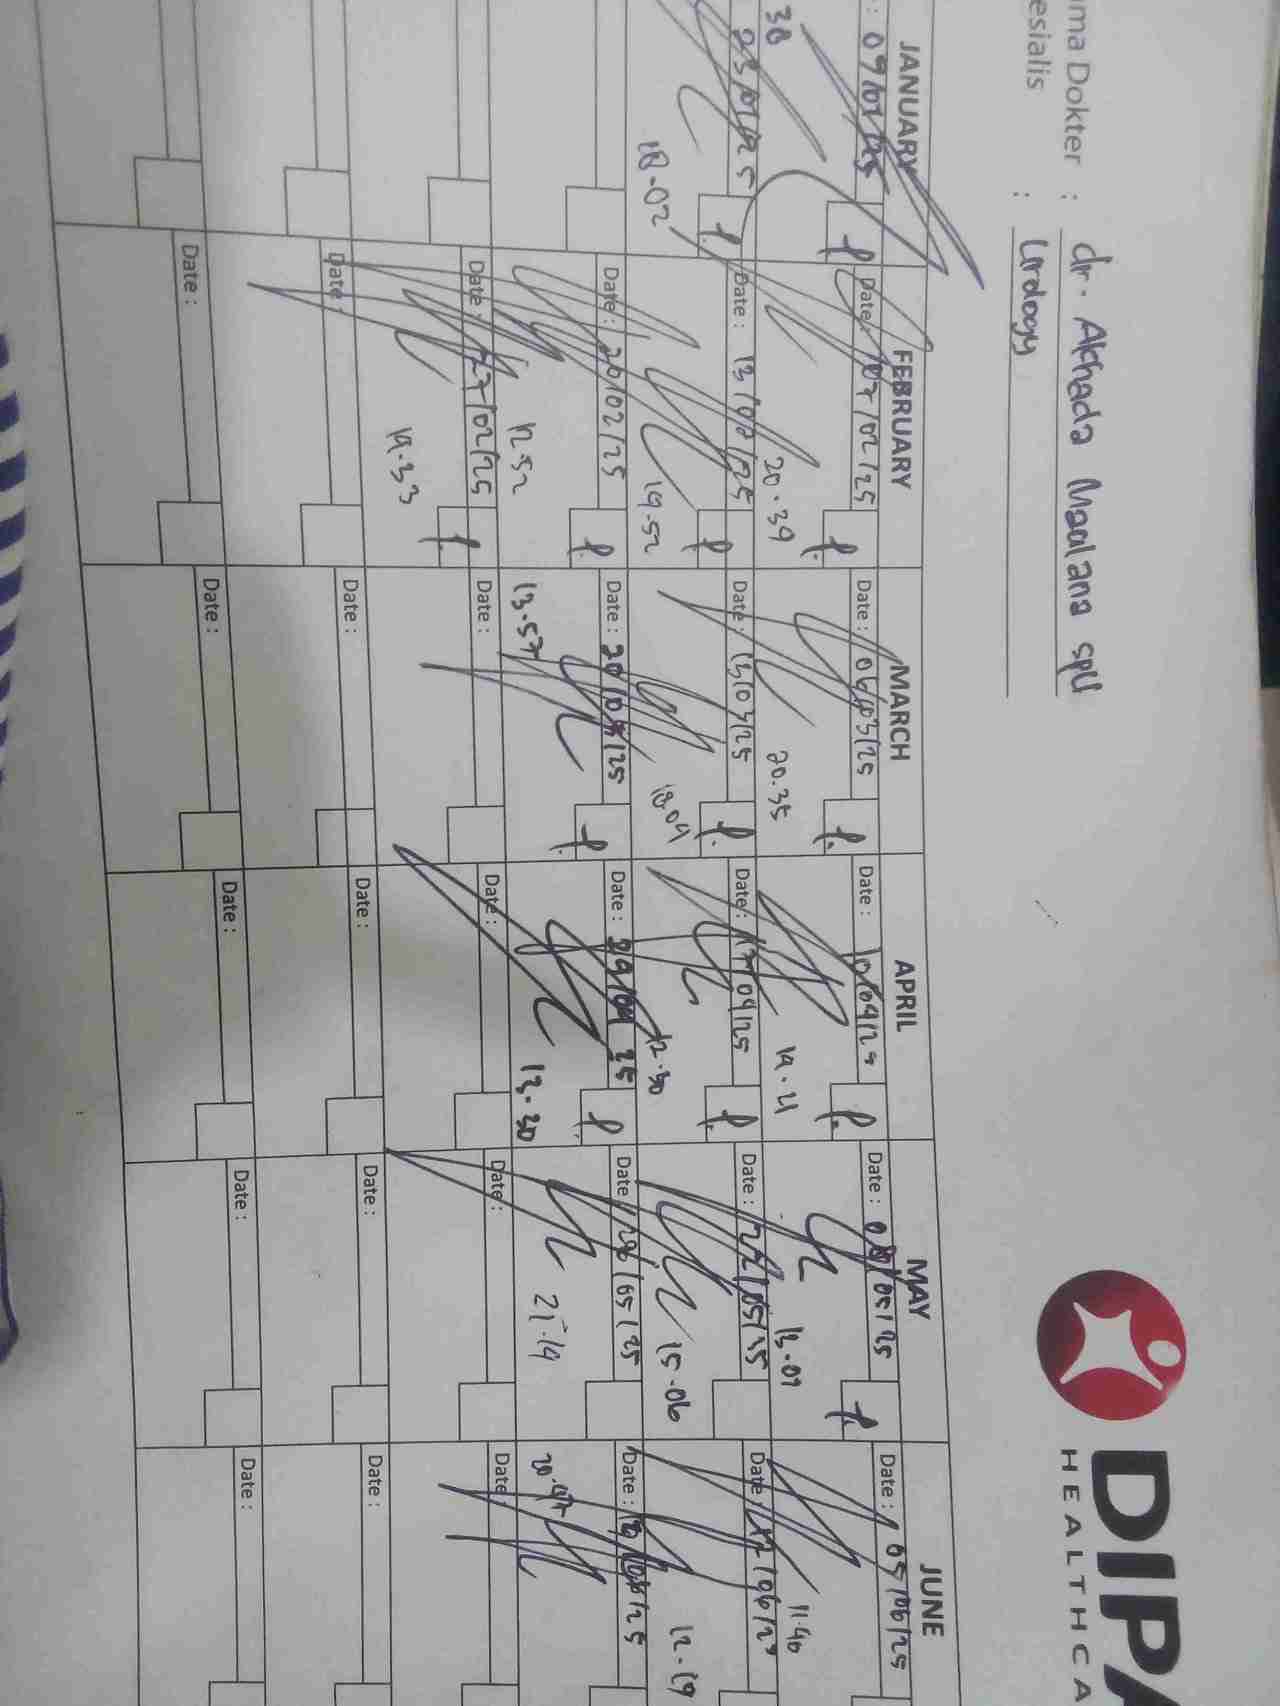 DIPA
HEALTHCA
ma Dokter : dr. Akhada Maulana SpU
esialis : Urology
JANUARY FEBRUARY MARCH APRIL MAY JUNE
: 09/01/25 Date : 07/02/25 Date : 06/03/25 Date : 10/04/25 Date : 08/05/25 Date : 05/06/25
38 20.39 20.35 19.21 13.09 11.40
23/01/25 Date : 13/02/25 Date : 13/03/25 Date : 17/04/25 Date : 22/05/25 Date : 12/06/25
18.02 19.52 18.09 12.30 15.06 12.19
Date : 20/02/25 Date : 20/03/25 Date : 29/04/25 Date : 28/05/25 Date :
12.52 13.57 13.30 21.19
Date : 27/02/25 Date : Date : Date : Date :
19.33
Date : Date : Date : Date : Date :
Date : Date : Date : Date : Date :